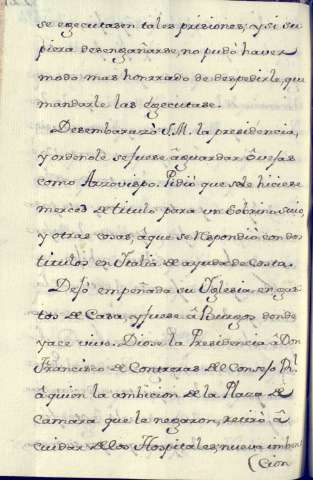 se egecutasen tales prisiones; y si su
piera desengañarse, no pudo haver
modo mas honrrado de despedirle, que
mandarle las egecutase.
Desembarazò S.M. la presidencia,
y ordenole se fuese â guardar Ôvejas
como Arzovispo. Pidiò que se le hiciese
merced de titulo para un Sobrino suio,
y otras cosas, â que se respondiò con dos
titulos en Italia de ayuda de Costa.
Dejo empeñada su Yglesia en gas
tos de Casa, y fuese â Burgos donde
yace vivo. Diose la Presidencia â Don
Francisco de Contreras de Consejo Rl.
â quien la ambicion de la Plaza de
Camara que le negaron, retirò â
cuidar de los Hospitales; nueva imben
(cion